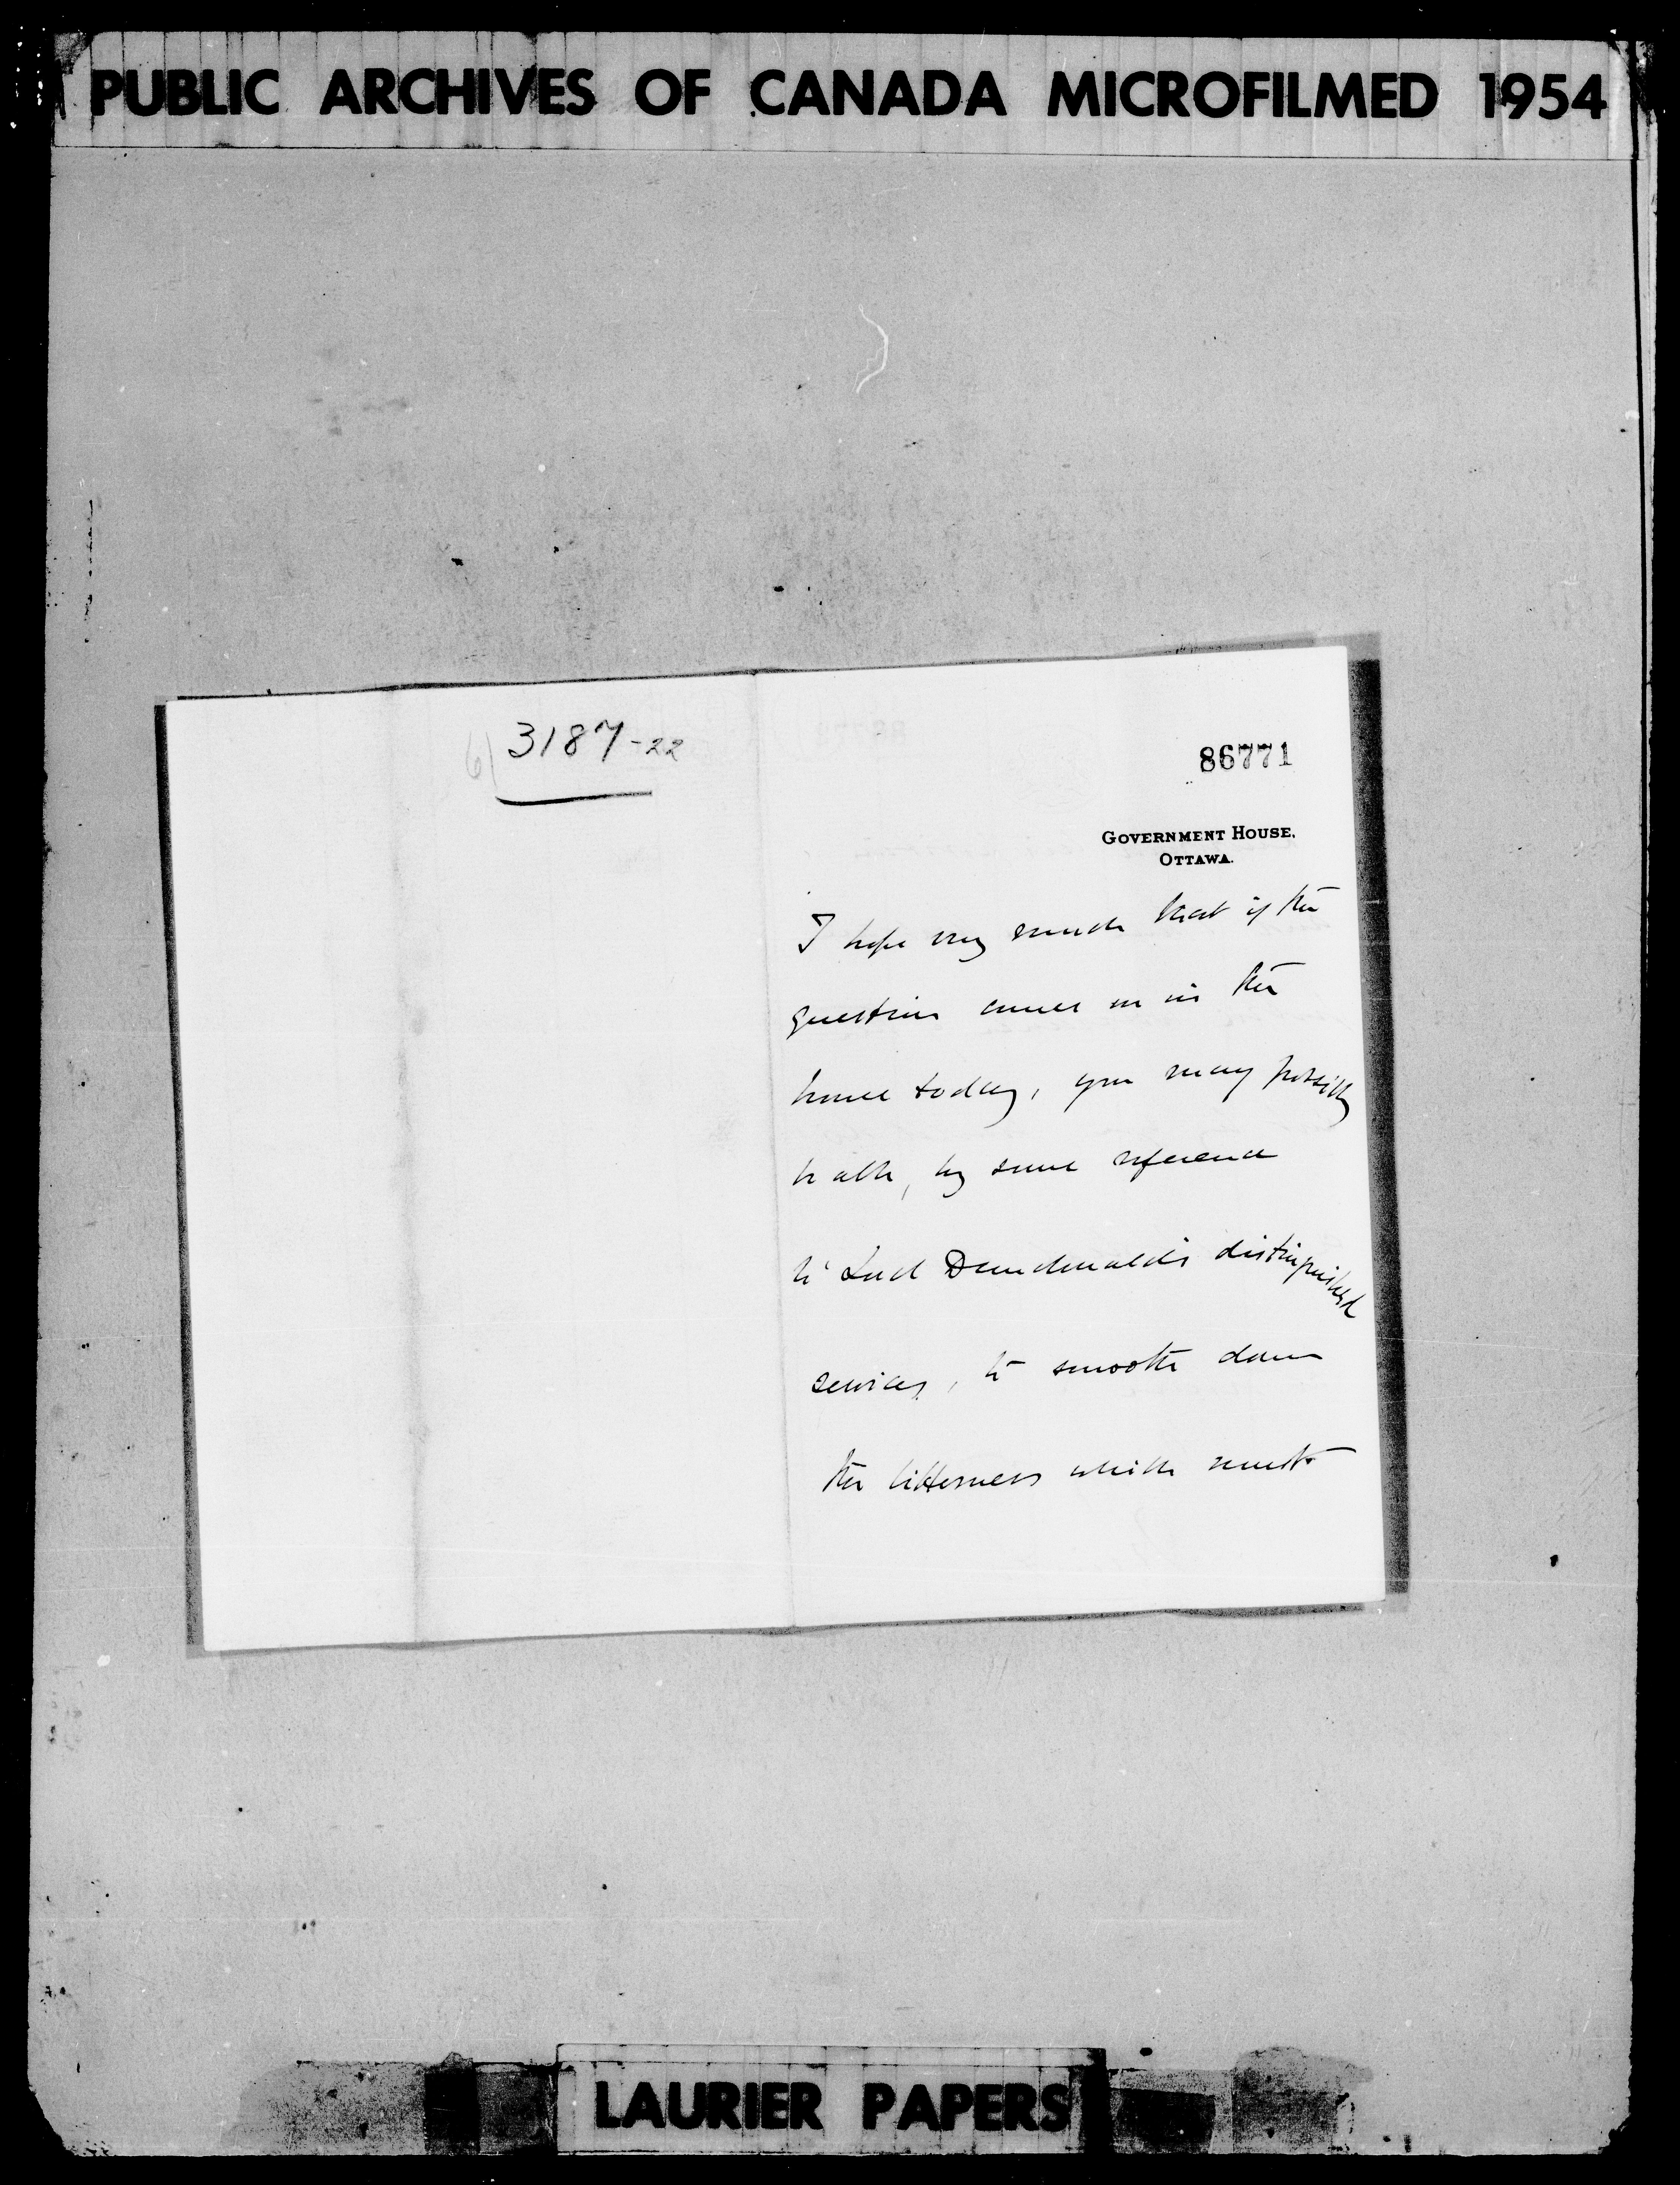 PUBLIC ARCHIVES OF CANADA MICROFILMED 1954
6) 3187-22
86771
GOVERNMENT HOUSE.
OTTAWA.
I hope very much that if the
question comes on in the
house today, you may possibly
be able, by some reference
to Lord Dundonald's distinguished
services, to smooth down
the bitterness which must
LAURIER PAPERS